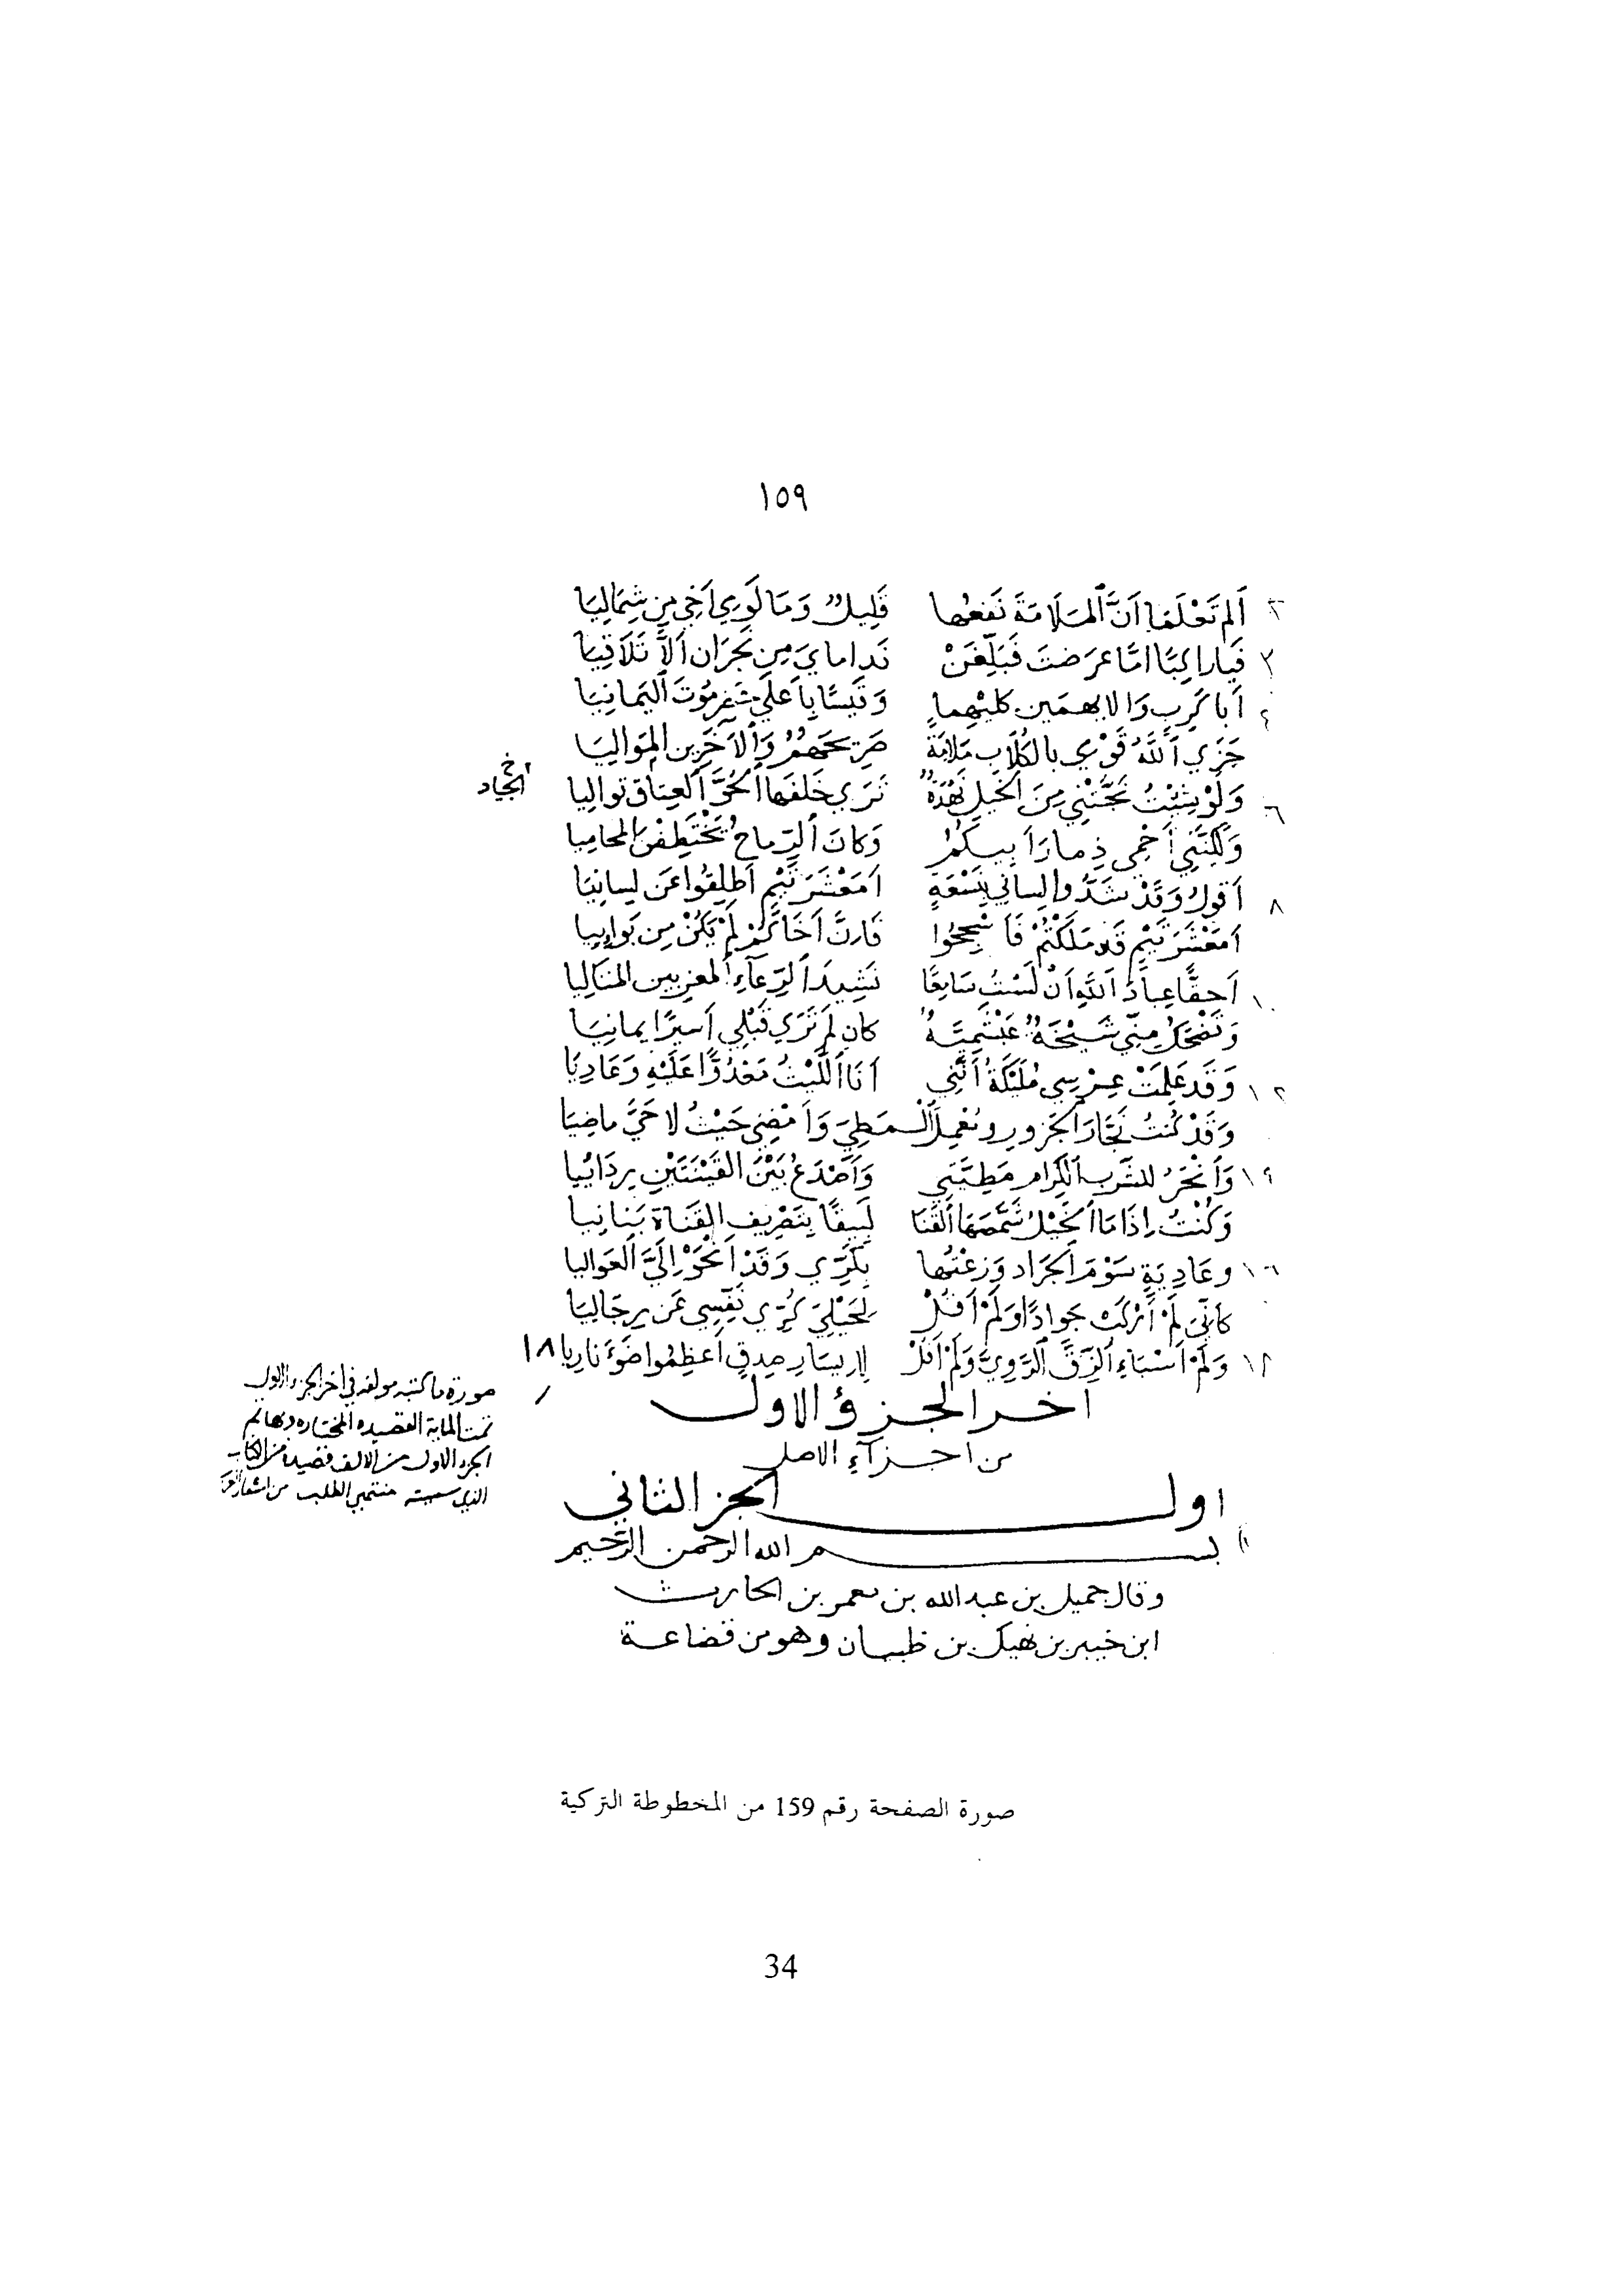 ١٥٩
٢ أَلَم تَعْلَمَا أَنَّ ٱلمَلَامَةَ نَفعُها قَلِيلٌ وَمَا لَوْمِي أَخِي مِن شِمَالِيَا
٣ فَيا راكِبًا امّا عرَضتَ فَبَلِّغَنْ نَدامايَ مِن نَجْرَان أَلَّا تَلَاقِيَا
٤ أَبا كَرِبٍ وَالايهمَين كليْهِما وَقَيسًا بِأَعلَى حَضرَمُوتَ ٱليَمانِيَا
جَزَي ٱللَّهُ قَوْمي بالكُلَابِ مَلَامَةً صَرِيحَهمُ وَٱلآخَرِين المَوَالِيَا
٦ وَلَوْ شِئْتُ نَجَّتْنِي مِنَ ٱلخَيلِ نَهْدَةٌ تَرَي خَلفَها ٱلحُوَّ ٱلعِتَاق تواليا
الجياد خ
وَلَكِنَّنِي أَحْمِى ذِمارَ أَبِيكُمُ وَكانَ ٱلرِّماحُ يَخْتَطِفْنَ المحامِيا
٨ أَقولُ وَقَدْ شَدُّوا لِساني بِنَسْعَةٍ أَمَعْشَرَ تَيْمٍ أَطلِقُوا عَن لِسانِيَا
أَمَعْشَرَ تَيْمٍ قَد مَلَكْتُمْ فَأَسْجِحُوا فَإِنَّ أَخَاكُمْ لَمْ يَكُنْ مِن بَوَائِيا
١٠ أَحقًّا عِبادَ ٱللَّهِ أَنْ لَسْتُ سَامِعًا نَشِيدَ ٱلرِّعَآءِ ٱلمعزِبين المتَالِيا
وَتَضْحَكُ مِنِّي شَيْخَةٌ عَبْشَمِيَّةٌ كان لم تَرَي قَبْلِي أَسِيرًا يمانِيَا
١٢ وَقَد عَلِمَتْ عِرْسِي مُلَيْكَةُ أَنَّنِي أَنَا ٱللَّيْثُ مَعْدُوًّا عَلَيْهِ وَعَادِيَا
وَقَدْ كُنتُ نَحَّارَ ٱلجَزورِ وَمُعْمِلَ ٱلْمَطِيِّ وَأَمْضِي حَيْثُ لا حَيَّ ماضِيَا
١٤ وَأَنْحَرُ للشَّربِ ٱلكِرَامِ مَطِيَّتِي وَأَصْدَعُ بَيْنَ القَيْنَتَيْنِ رِدَائِيا
وَكُنْتُ إِذَا مَا ٱلخَيْلُ شَمَّصَهَا ٱلقَنَا لَبِيقًا بِتَصْرِيفِ القَنَاةِ بَنانِيا
١٦ وعَادِيَةٍ سَوْمَ ٱلجَرَادِ وَزَعْتُها بِكَفِّي وَقَدْ أَنْحَوْا إِلَيَّ ٱلعَواليا
كَأَنِّيَ لَمْ أَرْكَبْ جَوادًا وَلَمْ أَقُلْ لِخَيْلِيَ كُرِّي نَفِّسِي عَن رِجَالِيَا
١٨ وَلَمْ أَسْبَاءِ ٱلزِّقَّ ٱلرَّوِيَّ وَلَمْ أَقُلْ لِأَيسَارِ صِدقٍ أَعظِمُوا ضَوْءَ نارِيا ١٨
اخر الجزؤ الاول
من اجزآء الاصل
صورة ما كتبه مولفه في اخر الجزء الاول
تمت الماية القصيده المختاره وبها تم
الجزء الاول من الالف قصيدة من الكتاب
الذي سميته منتهى الطلب من اشعار العرب
اول الجز الثاني
بسم الله الرحمن الرحيم
وقال جميل بن عبد الله بن معمر بن الحارث
ابن خيبر بن نهيك بن ظبيان وهو من قضاعة
صورة الصفحة رقم 159 من المخطوطة التركية
34